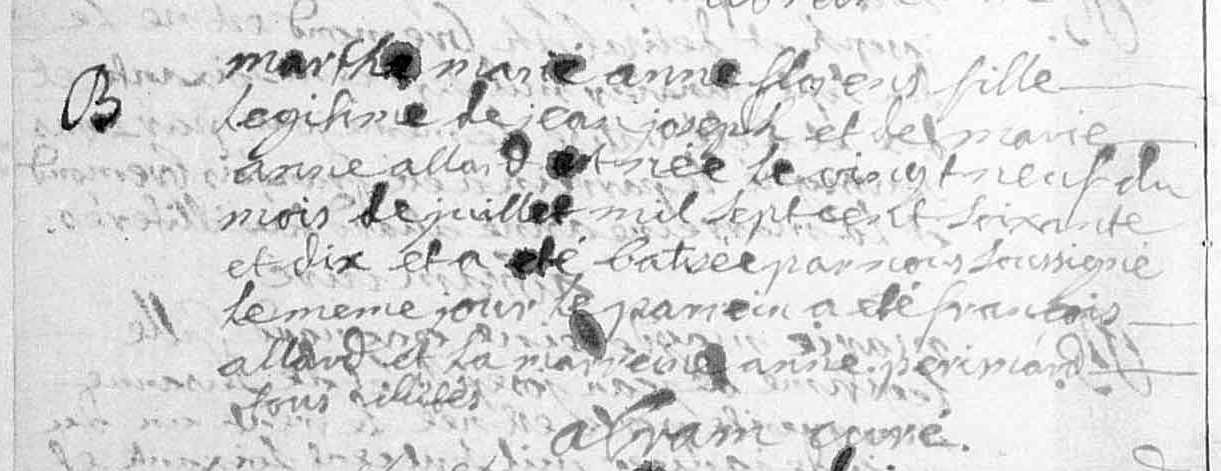 B
marthe marie anne florens fille
Legitime de jean joseph et de marie
anne allard est née le vingt neuf du
mois de juillet mil sept cent soixante
et dix et a eté batisée par nous soussigné
le meme jour le parrein a eté francois
allard et la marreine anne perimond
tous illités
abram curé.